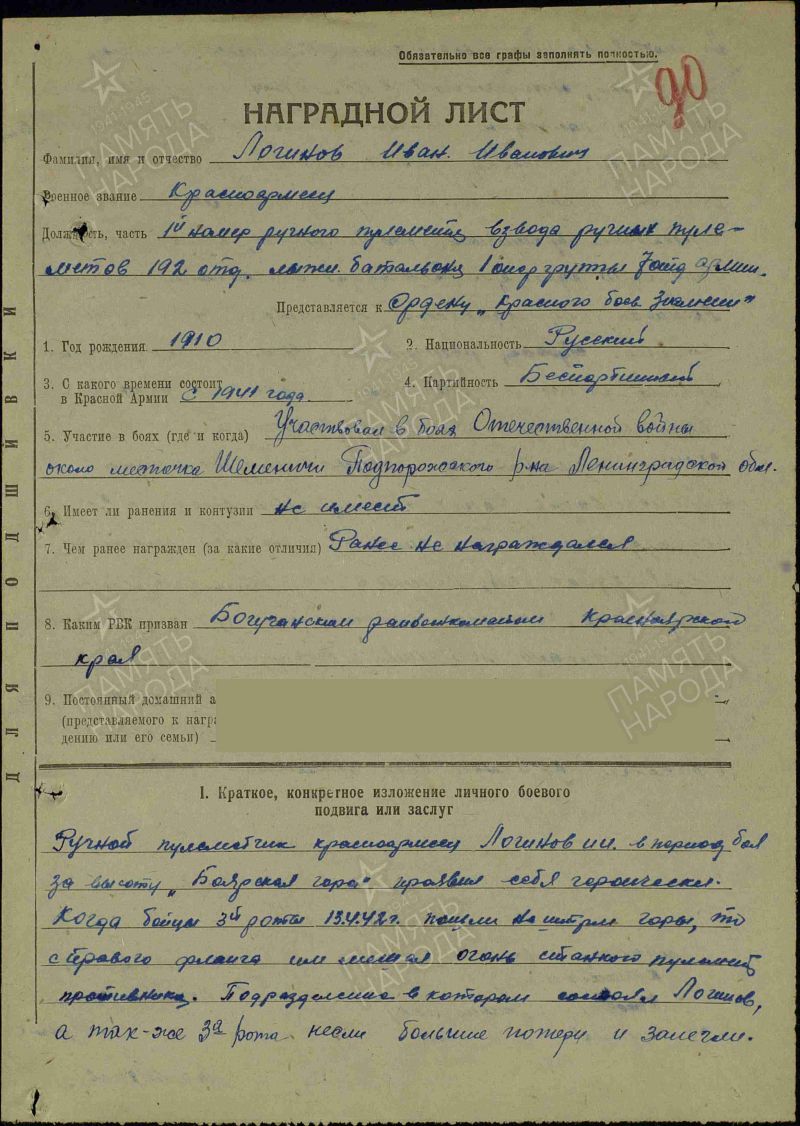 Обязательно все графы заполнять полностью.
90
НАГРАДНОЙ ЛИСТ
Фамилия, имя и отчество Логинов Иван Иванович
Военное звание Красноармеец
Должность, часть 1й номер ручного пулемета взвода ручных пуле-
метов 192 отд. лыжн. батальона 1 опергруппы 7 отд армии.
Представляется к Ордену „Красного боев. Знамени"
1. Год рождения 1910
2. Национальность Русский
3. С какого времени состоит
в Красной Армии с 1941 года
4. Партийность Беспартийный
5. Участие в боях (где и когда) Участвовал в боях Отечественной войны
около местечка Шеменичи Подпорожского р-на Ленинградской обл.
6. Имеет ли ранения и контузии не имеет
7. Чем ранее награжден (за какие отличия) Ранее не награждался
8. Каким РВК призван Богучанским райвоенкоматом Красноярского
края
9. Постоянный домашний а
(представляемого к награ
дению или его семьи)
I. Краткое, конкретное изложение личного боевого
подвига или заслуг
Ручной пулеметчик красноармеец Логинов ии. в период боя
за высоту „Боярская гора" проявил себя геройски.
Когда бойцы 3й роты 13.4.42 г. пошли на штурм горы, то
с правого фланга им мешал огонь станкового пулемета
противника. Подразделение в котором состоял Логинов,
а так-же 3я рота несли большие потери и залегли.
ДЛЯ ПОДШИВКИ
1941-1945
ПАМЯТЬ
НАРОДА